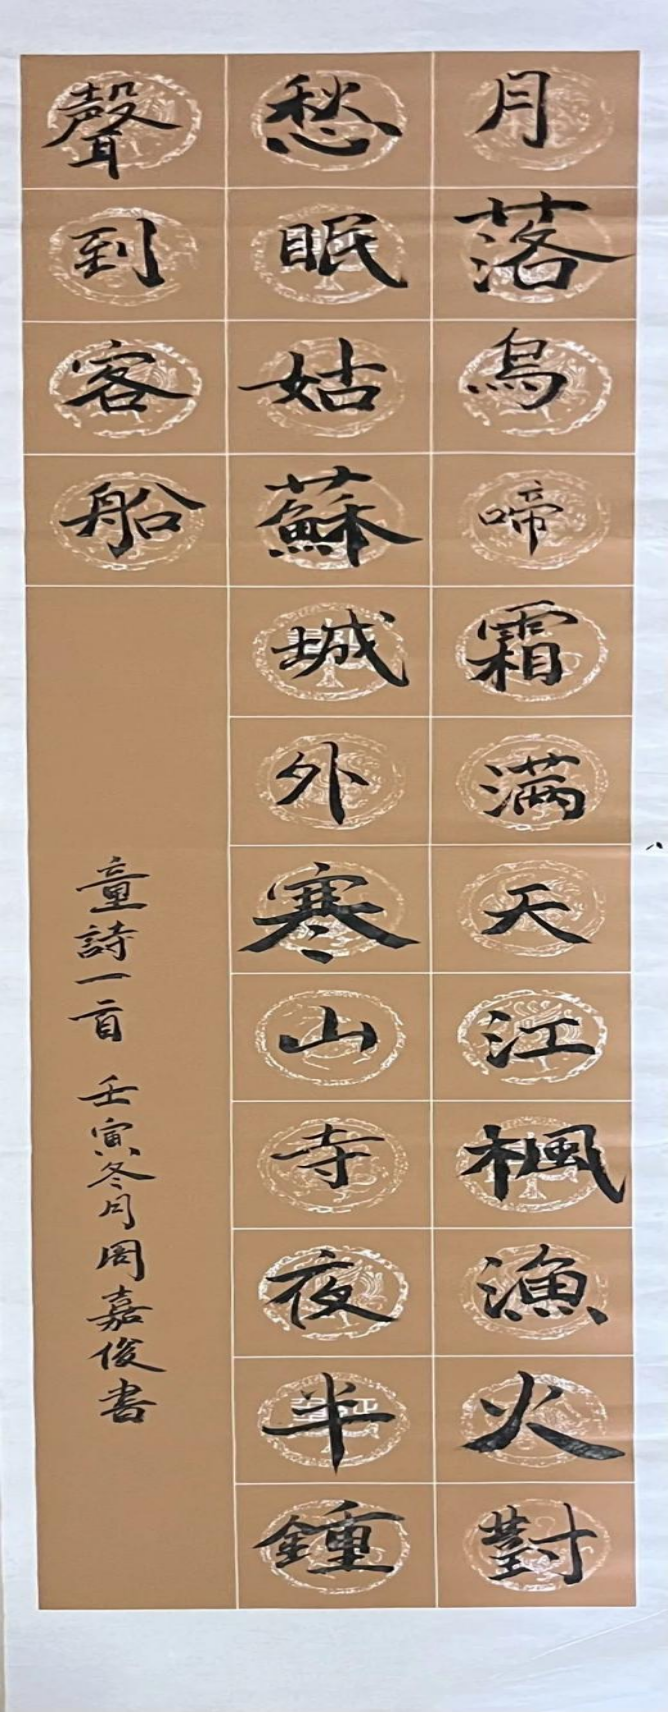 月落烏啼霜滿天江楓漁火對
愁眠姑蘇城外寒山寺夜半鍾
聲到客船
童詩一首 壬寅冬月周嘉俊書